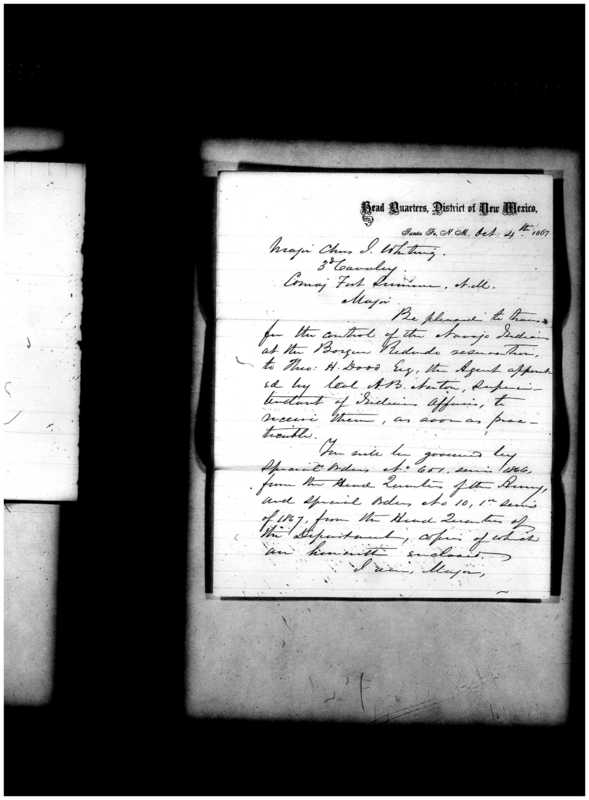 Head Quarters, District of New Mexico,
Santa Fe, N.M. Oct. 4th 1867
Major Chas J. Whiting.
3d Cavalry.
Comdg Fort Sumner, N.M.
Major
Be pleased to trans-
fer the control of the Navajo Indians
at the Bosque Redondo reservation,
to Theo: H. Dodd Esq, the Agent appoint
ed by Col A.B. Norton, Superin-
tendent of Indian Affairs, to
receive them, as soon as prac-
ticable.
You will be governed by
Special Orders No 601. series 1866,
from the Head Quarters of the Army,
and Special Orders No 10, 1st series
of 1867, from the Head Quarters of
the Department, copies of which
are herewith enclosed
I am, Major,